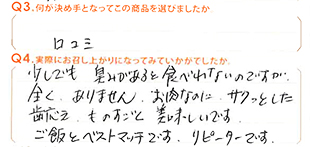 Q3.何が決め手となってこの商品を選びましたか
口コミ
Q4.実際にお召し上がりになってみていかがでしたか.
少しでも 臭みがあると食べれないのですが、
全く、ありません。お肉なのに、サクッとした
歯応え、ものすごく美味しいです。
ご飯とベストマッチです。リピーターです。